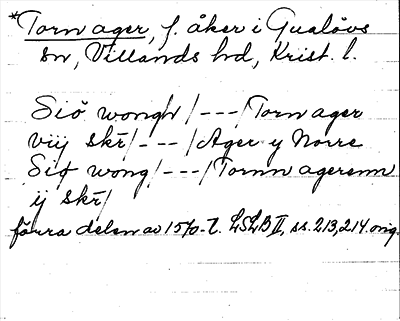 *Torn ager, f. åker i Gualövs
sn, Villands hd, Krist. l.
Siö wongh /---/ Torn ager
viij skr̄/---/ Ager y Norre
Siø wong /---/ Tornn agerenn
ij skr̄/
förra delen av 1570-t. LSLB II, ss. 213, 214. orig.